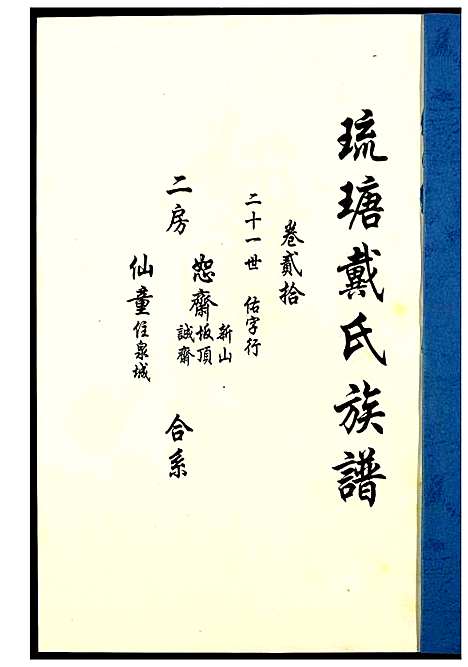 琉瑭戴氏族譜
卷貳拾
二十一世 佑字行
新山
恕齋坂頂
誠齋
二房
合系
仙童住泉城